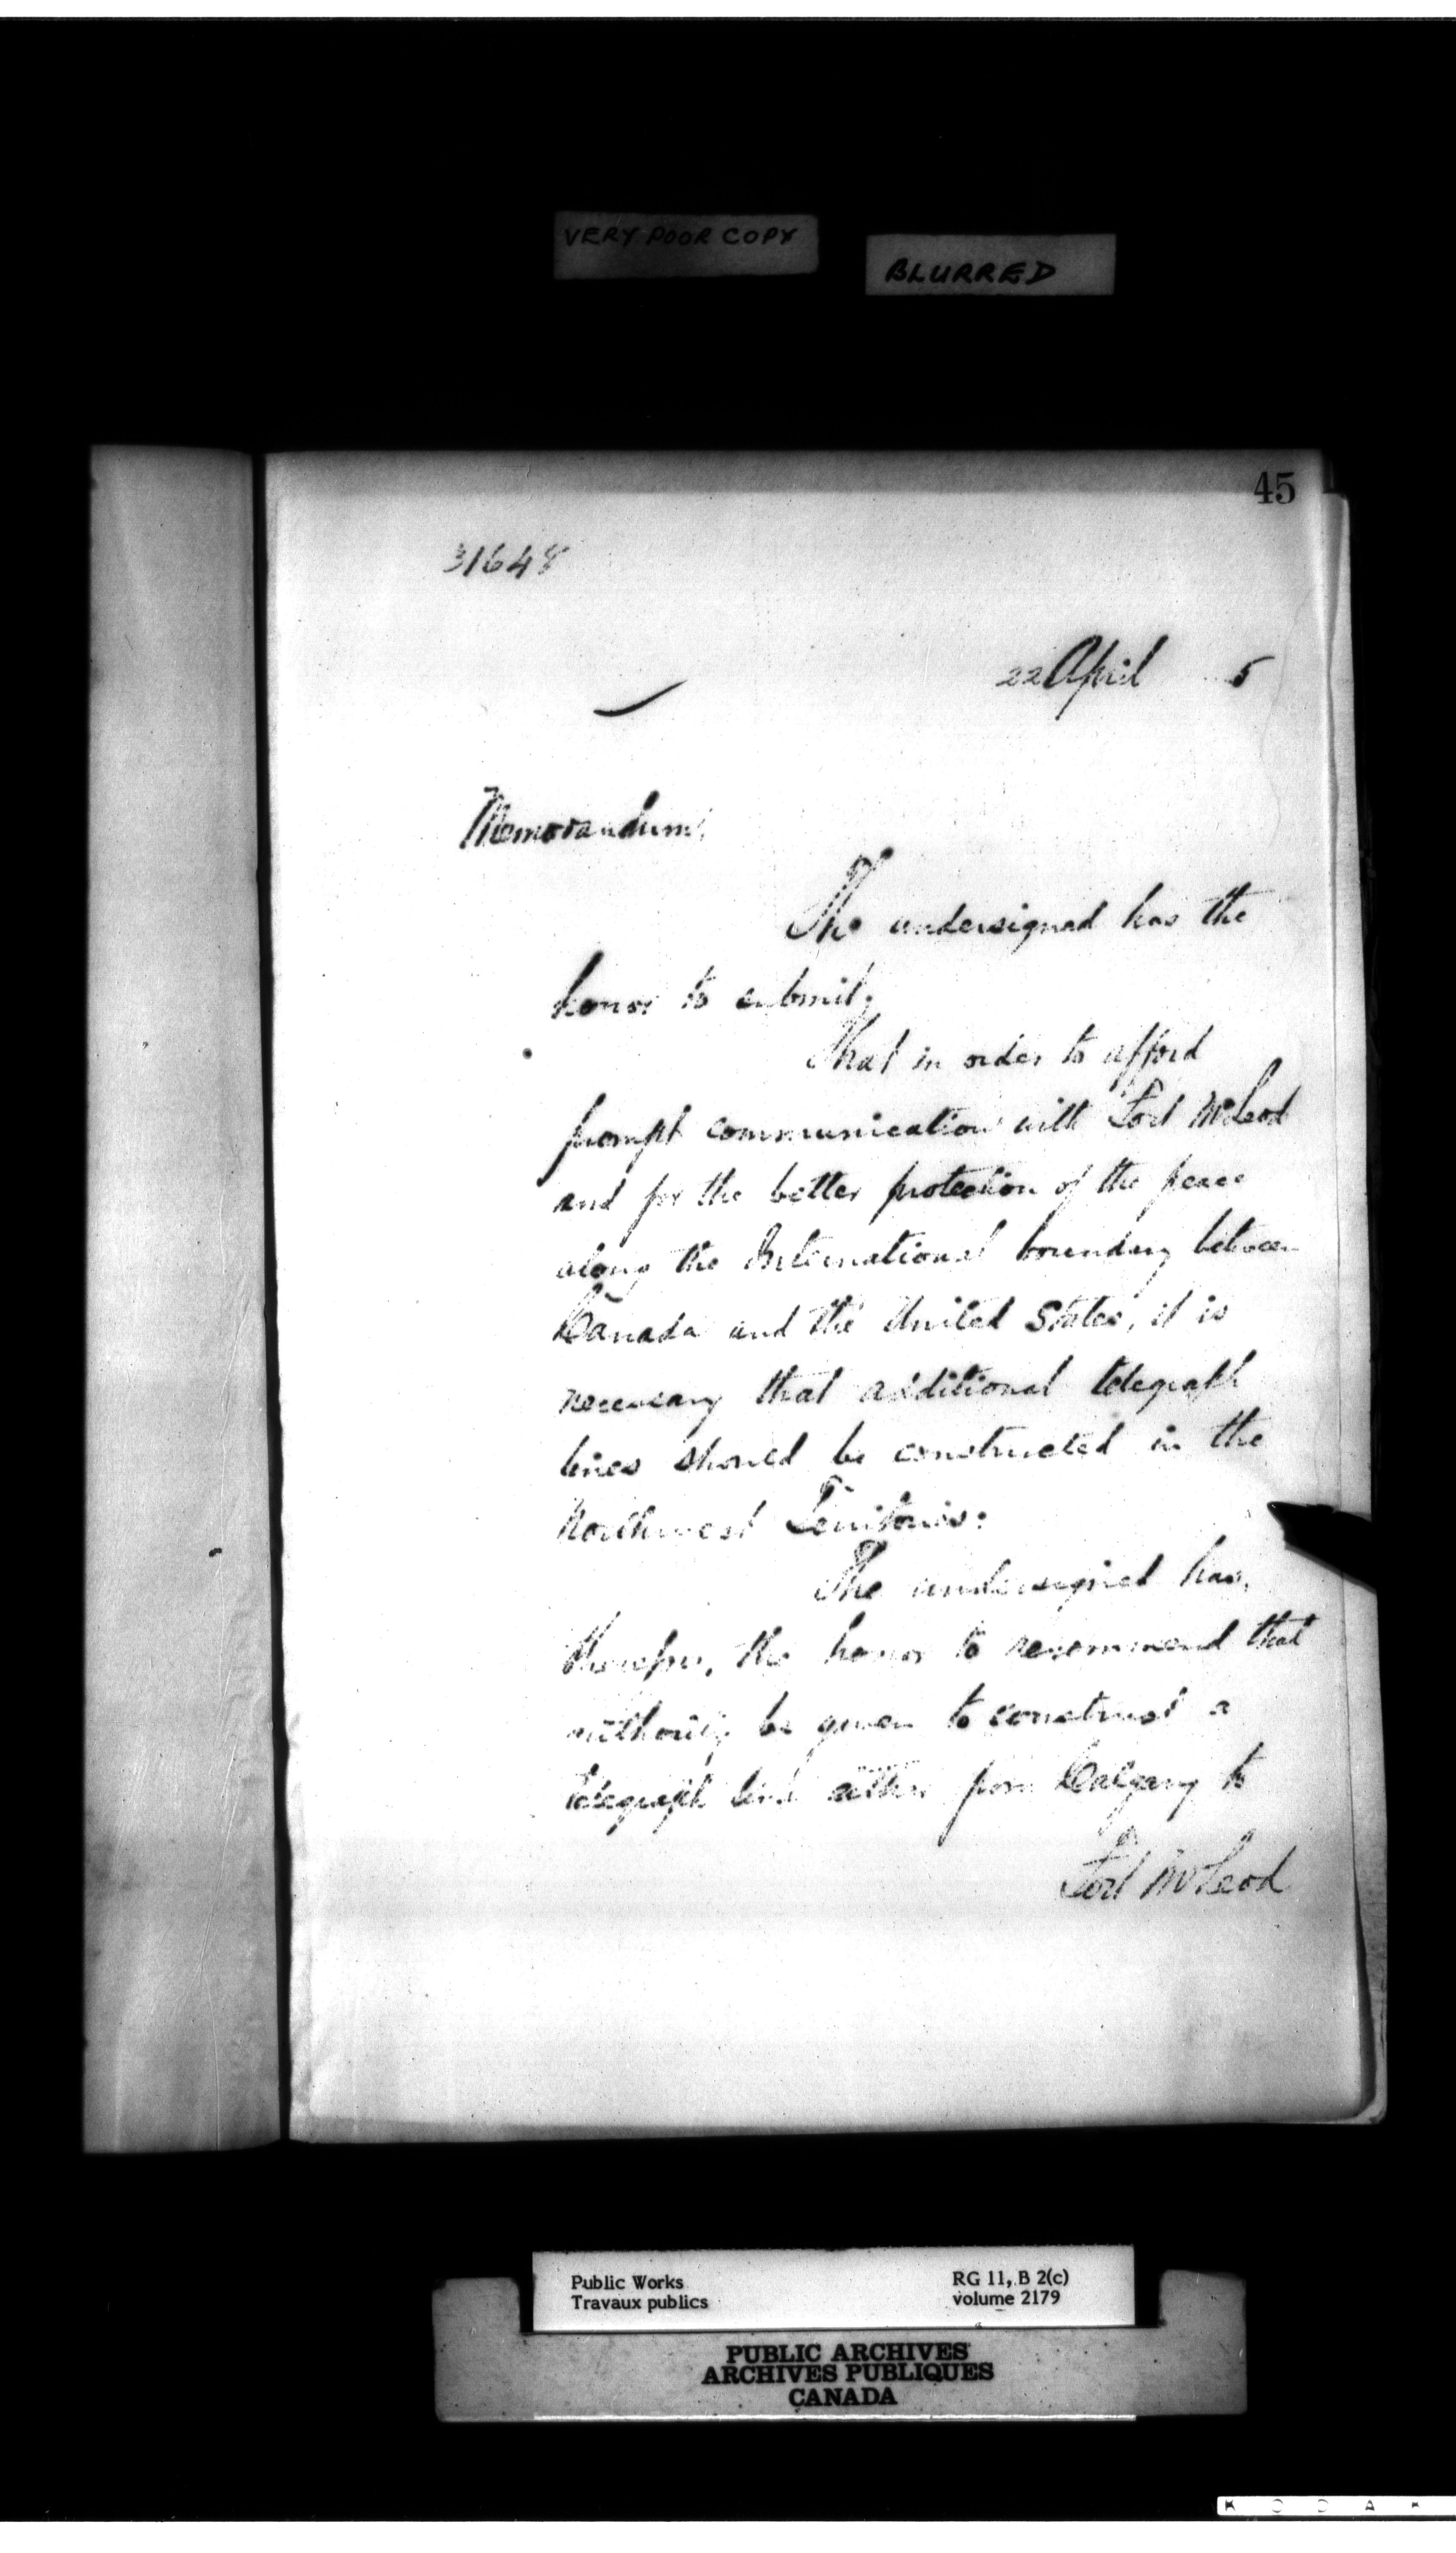 VERY POOR COPY
BLURRED
45
31648
22 April 5
Memorandum,
The undersigned has the
honor to submit;
That in order to afford
prompt communication with Fort McLeod
and for the better protection of the peace
along the International boundary between
Canada and the United States, it is
necessary that additional telegraph
lines should be constructed in the
Northwest Territories:
The undersigned has,
therefore, the honor to recommend that
authority be given to construct a
telegraph line either from Calgary to
Fort McLeod
Public Works
Travaux publics
RG 11, B 2(c)
volume 2179
PUBLIC ARCHIVES
ARCHIVES PUBLIQUES
CANADA
K O D A K